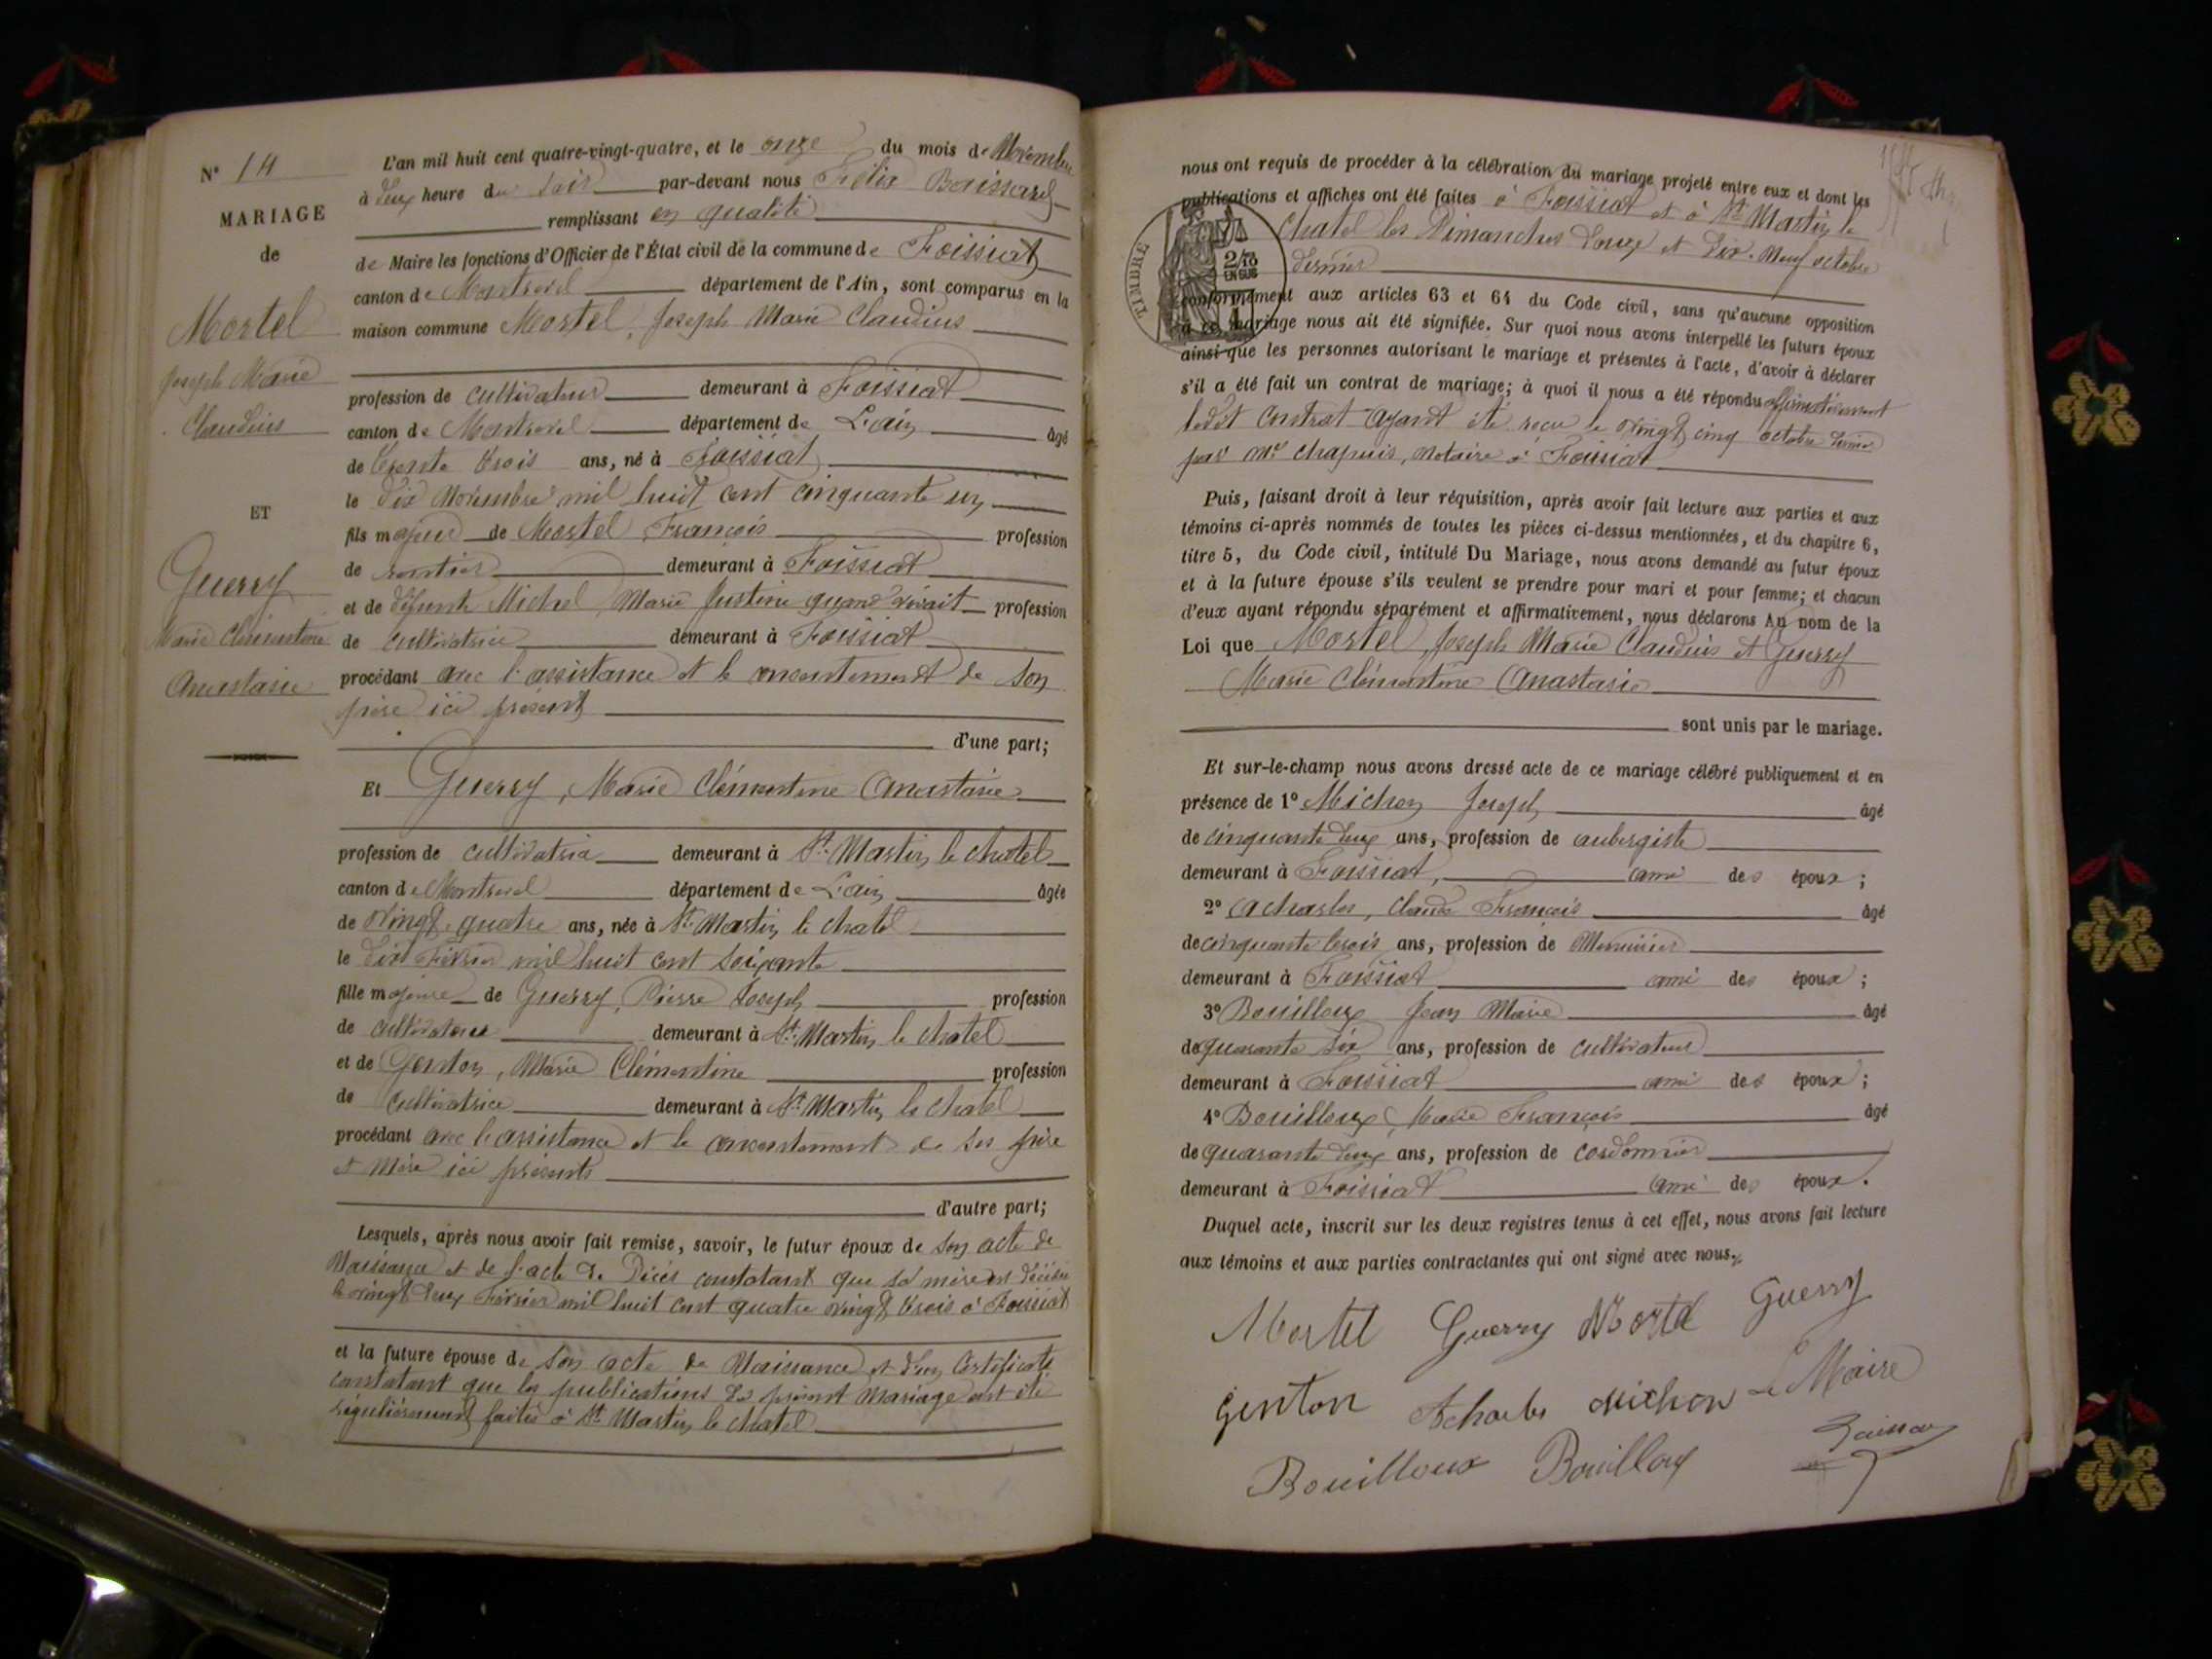 N° 14
MARIAGE
de
Mortel
Joseph Marie
Claudius
ET
Guerry
Marie Clémentine
Anastasie
L'an mil huit cent quatre-vingt-quatre, et le onze du mois de Novembre
à deux heure du soir par-devant nous Félix Boissard
remplissant en qualité
de Maire les fonctions d'Officier de l'État civil de la commune de Foissiat
canton de Montrevel département de l'Ain, sont comparus en la
maison commune Mortel, Joseph Marie Claudius
profession de cultivateur demeurant à Foissiat
canton de Montrevel département de L'ain âgé
de trente trois ans, né à Foissiat
le dix Novembre mil huit cent cinquante un
fils majeur de Mortel François profession
de rentier demeurant à Foissiat
et de défunte Michel, Marie Justine quand vivait profession
de cultivatrice demeurant à Foissiat
procédant avec l'assistance et le consentement de son
père ici présent
d'une part;
Et Guerry, Marie Clémentine Anastasie
profession de cultivatrice demeurant à St. Martin le chatel
canton de Montrevel département de L'ain âgée
de vingt quatre ans, née à St. Martin le chatel
le dix Février mil huit cent soixante
fille majeure de Guerry, Pierre Joseph profession
de cultivateur demeurant à St. Martin le chatel
et de Genton, Marie Clémentine profession
de cultivatrice demeurant à St. Martin le chatel
procédant avec l'assistance et le consentement de ses père
et mère ici présents
d'autre part;
Lesquels, après nous avoir fait remise, savoir, le futur époux de son acte de
Naissance et de l'acte de Décès constatant que sa mère est décédée
le vingt deux Février mil huit cent quatre vingt trois à Foissiat
et la future épouse de son acte de Naissance et d'un Certificat
constatant que les publications du présent mariage ont été
régulièrement faites à St. Martin le chatel
nous ont requis de procéder à la célébration du mariage projeté entre eux et dont les
publications et affiches ont été faites à Foissiat et à St. Martin le
chatel les Dimanches douze et dix-neuf octobre
dernier
TIMBRE
2/10
EN SUS
conformément aux articles 63 et 64 du Code civil, sans qu'aucune opposition
à ce mariage nous ait été signifiée. Sur quoi nous avons interpellé les futurs époux
ainsi que les personnes autorisant le mariage et présentes à l'acte, d'avoir à déclarer
s'il a été fait un contrat de mariage; à quoi il nous a été répondu affirmativement
ledit contrat ayant été reçu le vingt cinq octobre dernier
par Me Chapuis, notaire à Foissiat
Puis, faisant droit à leur réquisition, après avoir fait lecture aux parties et aux
témoins ci-après nommés de toutes les pièces ci-dessus mentionnées, et du chapitre 6,
titre 5, du Code civil, intitulé Du Mariage, nous avons demandé au futur époux
et à la future épouse s'ils veulent se prendre pour mari et pour femme; et chacun
d'eux ayant répondu séparément et affirmativement, nous déclarons Au nom de la
Loi que Mortel, Joseph Marie Claudius et Guerry
Marie Clémentine Anastasie
sont unis par le mariage.
Et sur-le-champ nous avons dressé acte de ce mariage célébré publiquement et en
présence de 1° Michon Joseph âgé
de cinquante deux ans, profession de aubergiste
demeurant à Foissiat, ami des époux;
2° Acharles, Claude François âgé
de cinquante trois ans, profession de Menuisier
demeurant à Foissiat ami des époux;
3° Bouilloux Jean Marie âgé
de quarante six ans, profession de cultivateur
demeurant à Foissiat ami des époux;
4° Bouilloux, Marie François âgé
de quarante deux ans, profession de cordonnier
demeurant à Foissiat ami des époux.
Duquel acte, inscrit sur les deux registres tenus à cet effet, nous avons fait lecture
aux témoins et aux parties contractantes qui ont signé avec nous.
Mortel Guerry Mortel Guerry
Genton Acharles Michon Le Maire
Bouilloux Bouilloux